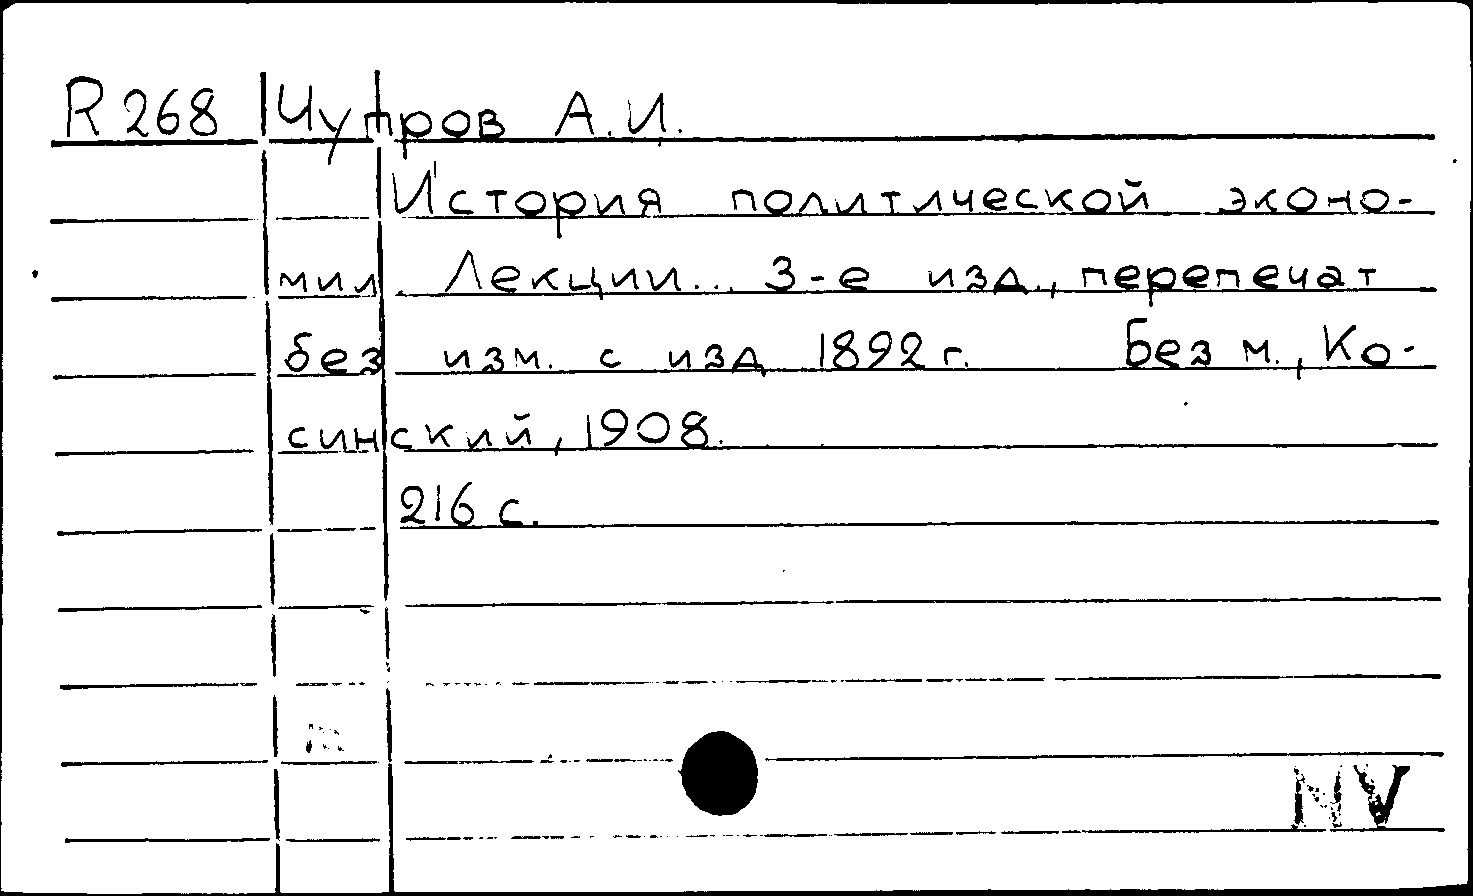 R 268 Чупров А.И.
История политической эконо-
мии. Лекции... 3-е изд., перепечат
без изм. с изд 1892 г. Без м., Ко-
синский, 1908.
216 с.
MV